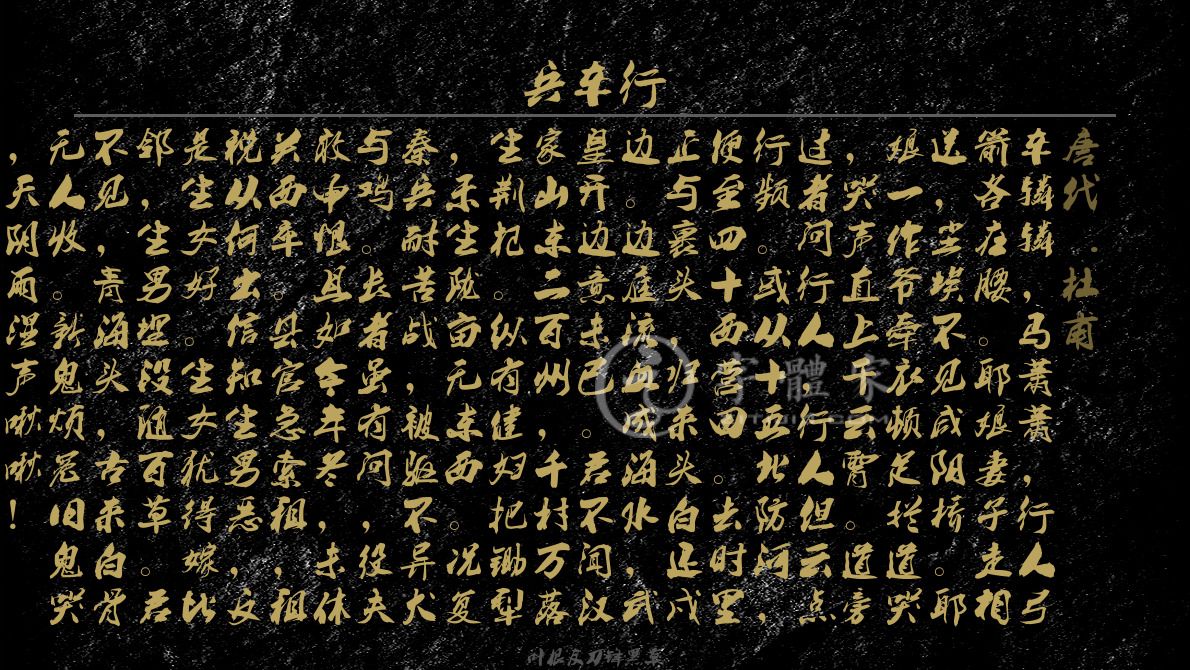 兵车行
唐代·杜甫
车辚辚，马萧萧，行人弓
箭各在腰。耶娘妻子走相
送，尘埃不见咸阳桥。耶
娘一作爷牵衣顿足拦道哭
，哭声直上干云霄。道旁
过者问行人，行人但云点
行频。或从十五北防河，
便至四十西营田。去时里
正与裹头，归来头白还戍
边。边庭流血成海水，武
皇开边意未已。君不闻汉
家山东二百州，千村万落
生荆杞。纵有健妇把锄犁
，禾生陇亩无东西。况复
秦兵耐苦战，被驱不异犬
与鸡。长者虽有问，役夫
敢申恨且如今年冬，未休
关西卒。县官急索租，租
税从何出。信知生男恶，反
是生女好。生女犹得嫁比
邻，生男埋没随百草。君
不见，青海头，古来白骨
无人收。新鬼烦冤旧鬼哭
，天阴雨湿声啾啾！
字體家